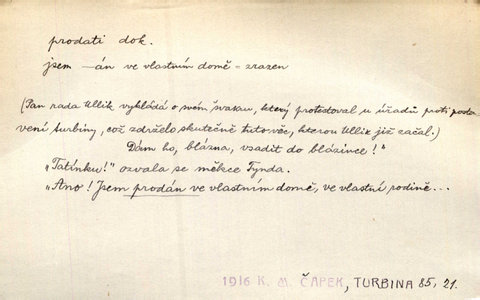 prodati dok.
jsem —án ve vlastním domě = zrazen
(Pan rada Ullik vykládá o svém švakru, který protestoval u úřadů proti posta-
vení turbiny, což zdrželo skutečně tuto věc, kterou Ullik již začal.)
Dám ho, blázna, vsadit do blázince!"
„Tatínku!" ozvala se měkce Tynda.
„Ano! Jsem prodán ve vlastním domě, ve vlastní rodině...
1916 K. M. ČAPEK, TURBINA 85, 21.